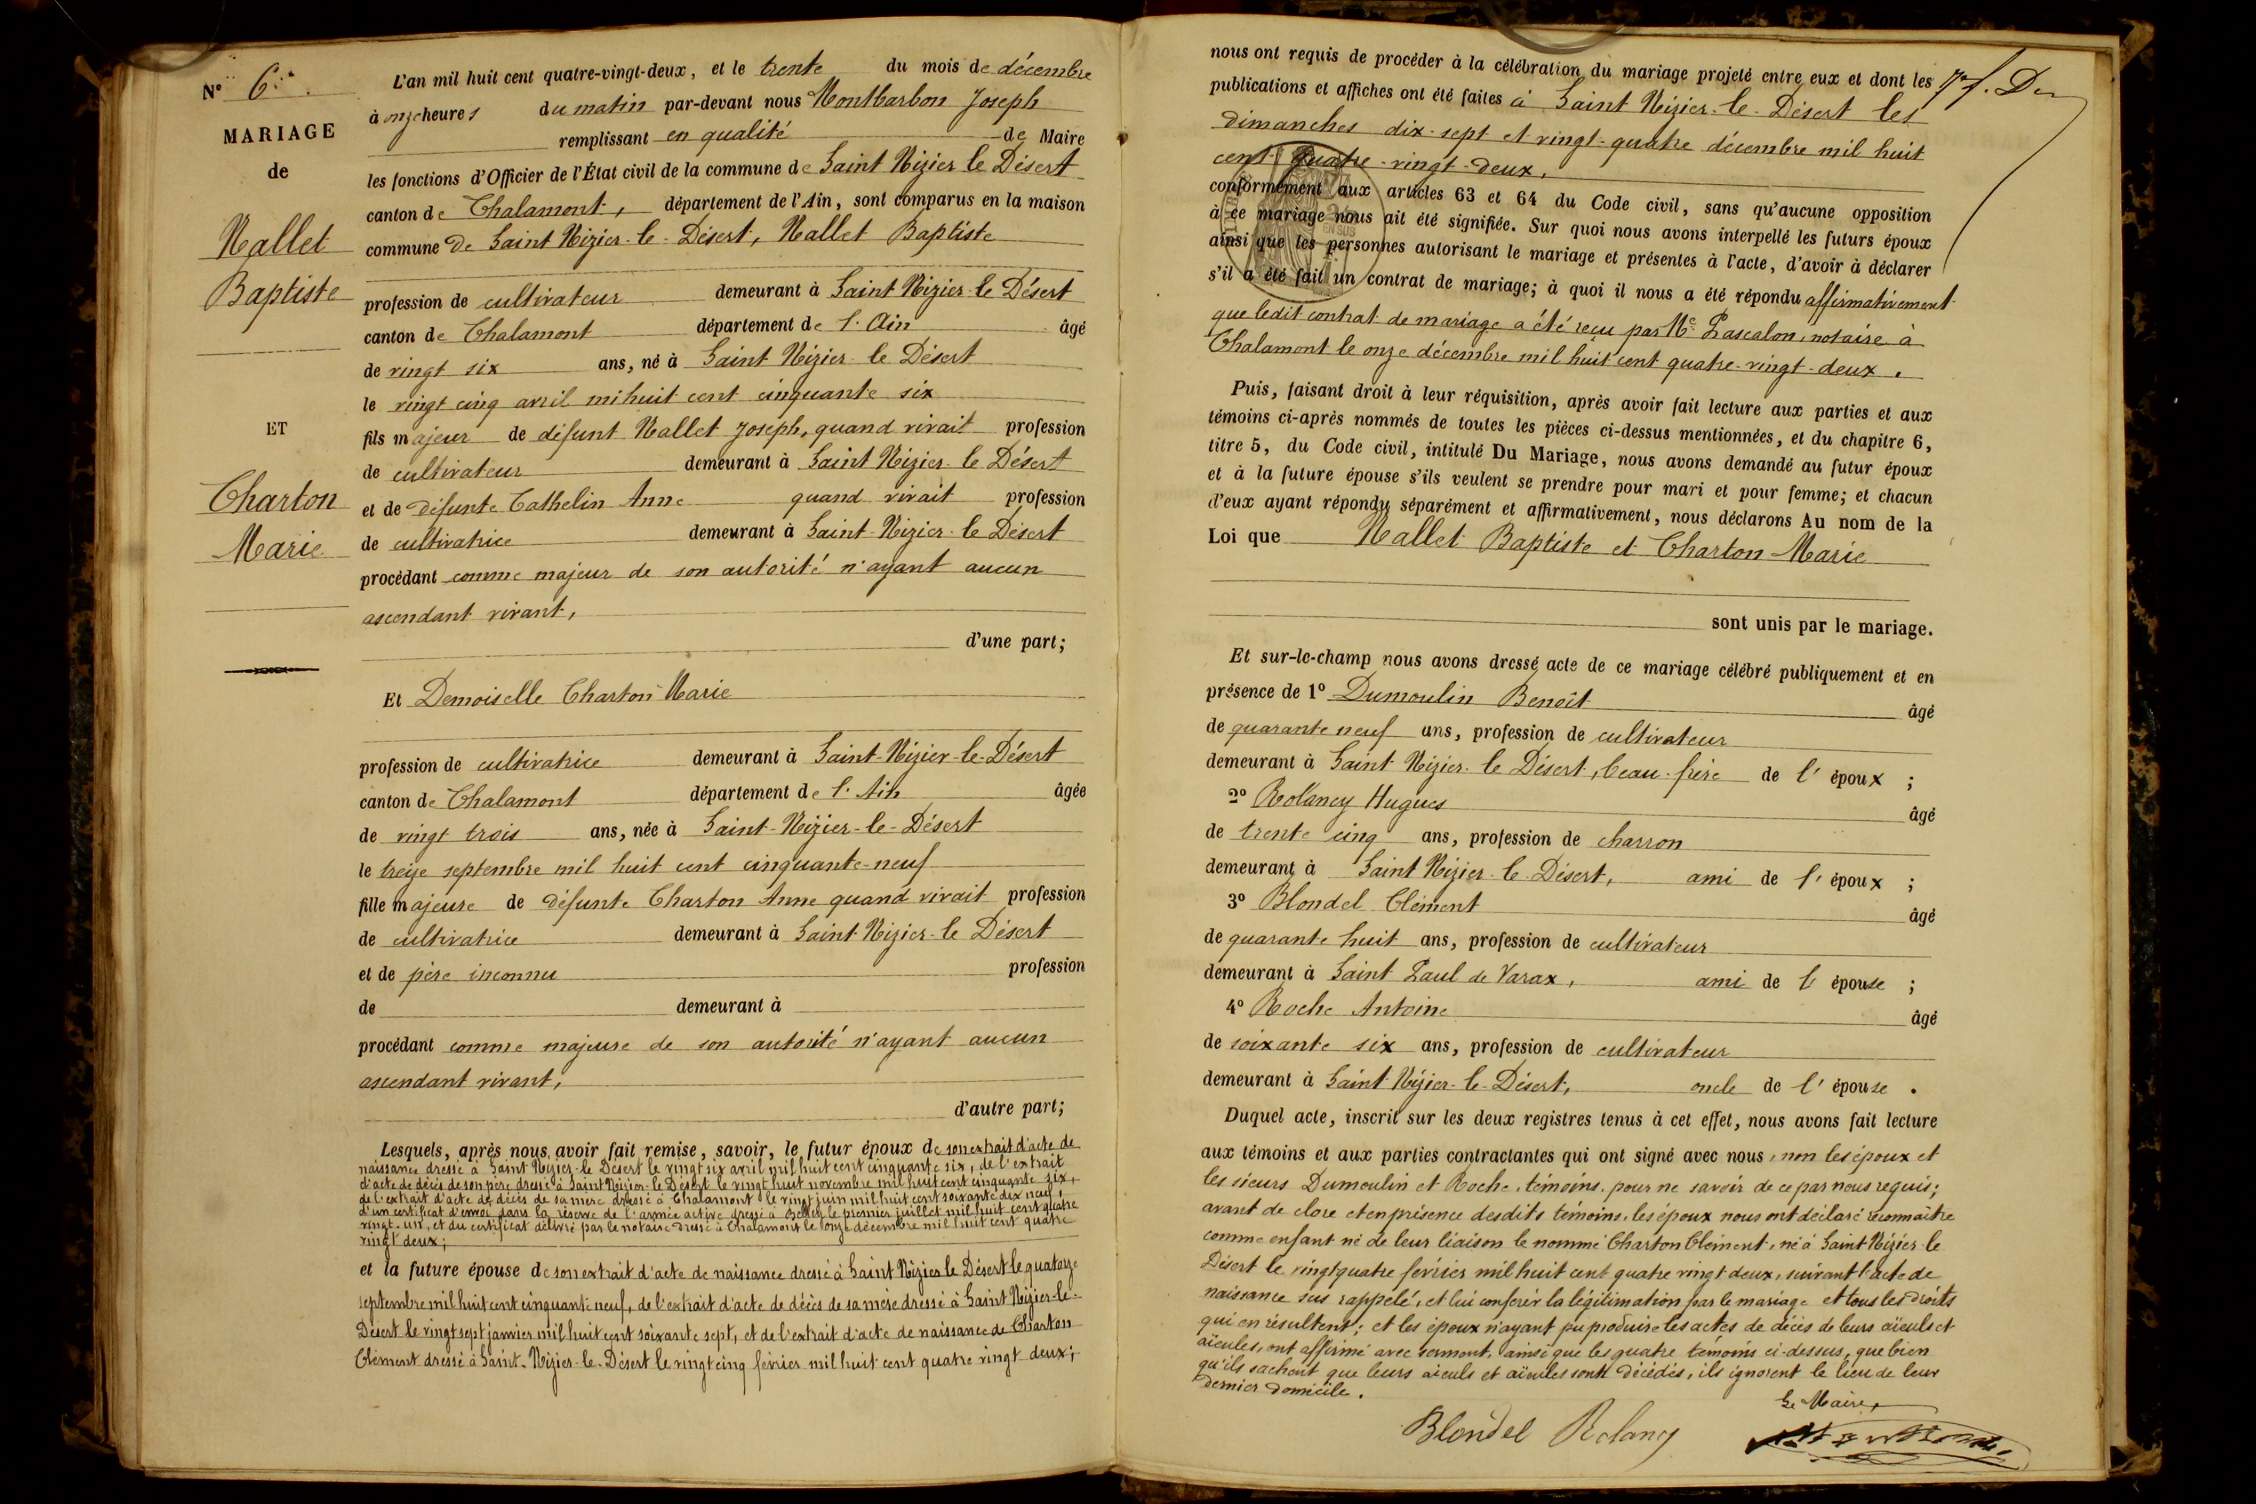 N° 6.
MARIAGE
de
Nallet
Baptiste
ET
Charton
Marie
L'an mil huit cent quatre-vingt-deux, et le trente du mois de décembre
à onze heures du matin par-devant nous Montbarbon Joseph
remplissant en qualité de Maire
les fonctions d'Officier de l'État civil de la commune de Saint Nizier le Désert
canton de Chalamont, département de l'Ain, sont comparus en la maison
commune de Saint Nizier-le-Désert, Nallet Baptiste
profession de cultivateur demeurant à Saint Nizier le Désert
canton de Chalamont département de l'Ain âgé
de vingt six ans, né à Saint Nizier le Désert
le vingt cinq avril mil huit cent cinquante six
fils majeur de défunt Nallet Joseph, quand vivait profession
de cultivateur demeurant à Saint Nizier-le Désert
et de défunte Cathelin Anne quand vivait profession
de cultivatrice demeurant à Saint-Nizier-le Désert
procédant comme majeur de son autorité n'ayant aucun
ascendant vivant,
d'une part;
Et Demoiselle Charton Marie
profession de cultivatrice demeurant à Saint-Nizier-le-Désert
canton de Chalamont département de l'Ain âgée
de vingt trois ans, née à Saint-Nizier-le-Désert
le treize septembre mil huit cent cinquante-neuf
fille majeure de défunte Charton Anne quand vivait profession
de cultivatrice demeurant à Saint-Nizier-le Désert
et de père inconnu profession
de demeurant à
procédant comme majeure de son autorité n'ayant aucun
ascendant vivant,
d'autre part;
Lesquels, après nous avoir fait remise, savoir, le futur époux de son extrait d'acte de
naissance dressé à Saint Nizier-le Désert le vingt six avril mil huit cent cinquante six, de l'extrait
d'acte de décès de son père dressé à Saint Nizier-le Désert le vingt huit novembre mil huit cent cinquante six,
de l'extrait d'acte de décès de sa mère dressé à Chalamont le vingt juin mil huit cent soixante dix neuf,
d'un certificat d'envoi dans la réserve de l'armée active dressé à Belley le premier juillet mil huit cent quatre
vingt-un, et du certificat délivré par le notaire dressé à Chalamont le onze décembre mil huit cent quatre
vingt deux;
et la future épouse de son extrait d'acte de naissance dressé à Saint Nizier le Désert le quatorze
septembre mil huit cent cinquante neuf, de l'extrait d'acte de décès de sa mère dressé à Saint Nizier-le-
Désert le vingt sept janvier mil huit cent soixante sept, et de l'extrait d'acte de naissance de Charton
Clément dressé à Saint-Nizier-le-Désert le vingt cinq février mil huit cent quatre vingt deux;
nous ont requis de procéder à la célébration du mariage projeté entre eux et dont les
publications et affiches ont été faites à Saint Nizier-le-Désert les
dimanches dix-sept et vingt-quatre décembre mil huit
cent quatre-vingt-deux,
conformément aux articles 63 et 64 du Code civil, sans qu'aucune opposition
à ce mariage nous ait été signifiée. Sur quoi nous avons interpellé les futurs époux
ainsi que les personnes autorisant le mariage et présentes à l'acte, d'avoir à déclarer
s'il a été fait un contrat de mariage; à quoi il nous a été répondu affirmativement
que ledit contrat de mariage a été reçu par Me Pascalon, notaire à
Chalamont le onze décembre mil huit cent quatre-vingt-deux.
Puis, faisant droit à leur réquisition, après avoir fait lecture aux parties et aux
témoins ci-après nommés de toutes les pièces ci-dessus mentionnées, et du chapitre 6,
titre 5, du Code civil, intitulé Du Mariage, nous avons demandé au futur époux
et à la future épouse s'ils veulent se prendre pour mari et pour femme; et chacun
d'eux ayant répondu séparément et affirmativement, nous déclarons Au nom de la
Loi que Nallet Baptiste et Charton Marie
sont unis par le mariage.
Et sur-le-champ nous avons dressé acte de ce mariage célébré publiquement et en
présence de 1° Dumoulin Benoît âgé
de quarante neuf ans, profession de cultivateur
demeurant à Saint Nizier-le Désert, beau-frère de l'époux ;
2° Rolancy Hugues âgé
de trente cinq ans, profession de charron
demeurant à Saint Nizier-le-Désert, ami de l'époux ;
3° Blondel Clément âgé
de quarante huit ans, profession de cultivateur
demeurant à Saint Paul de Varax, ami de l'épouse ;
4° Roche Antoine âgé
de soixante six ans, profession de cultivateur
demeurant à Saint-Nizier-le-Désert, oncle de l'épouse .
Duquel acte, inscrit sur les deux registres tenus à cet effet, nous avons fait lecture
aux témoins et aux parties contractantes qui ont signé avec nous, non les époux et
les sieurs Dumoulin et Roche, témoins, pour ne savoir de ce par nous requis;
avant de clore et en présence desdits témoins, les époux nous ont déclaré reconnaître
comme enfant né de leur liaison le nommé Charton Clément, né à Saint Nizier-le
Désert le vingt quatre février mil huit cent quatre vingt deux, suivant l'acte de
naissance sus rappelé, et lui conférer la légitimation par le mariage et tous les droits
qui en résultent; et les époux n'ayant pu produire les actes de décès de leurs aïeuls et
aïeules, ont affirmé avec serment, ainsi que les quatre témoins ci-dessus, que bien
qu'ils sachent que leurs aïeuls et aïeules sont décédés, ils ignorent le lieu de leur
dernier domicile.
Le Maire,
Blondel Rolancy